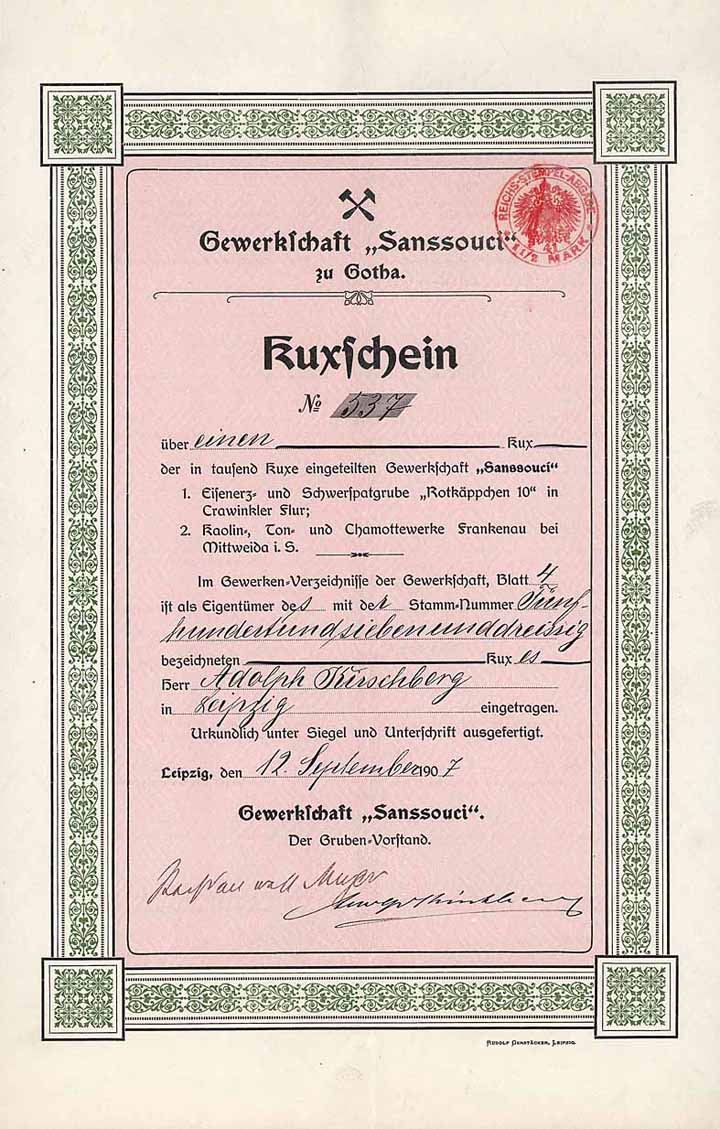 Gewerkschaft „Sanssouci“
zu Gotha.
REICHS-STEMPEL-ABGABE
1 1/2 MARK
Kuxschein
No 537
über einen Kux
der in tausend Kuxe eingeteilten Gewerkschaft „Sanssouci“
1. Eisenerz- und Schwerspatgrube „Rotkäppchen 10“ in
Crawinkler Flur;
2. Kaolin-, Ton- und Chamottewerke Frankenau bei
Mittweida i. S.
Im Gewerken-Verzeichnisse der Gewerkschaft, Blatt 4
ist als Eigentümer des mit der Stamm-Nummer Fünf-
hundertundsiebenunddreissig
bezeichneten Kux es
Herr Adolph Kirschberg
in Leipzig eingetragen.
Urkundlich unter Siegel und Unterschrift ausgefertigt.
Leipzig, den 12. September 1907
Gewerkschaft „Sanssouci“.
Der Gruben-Vorstand.
RUDOLF GERSTÄCKER, LEIPZIG.